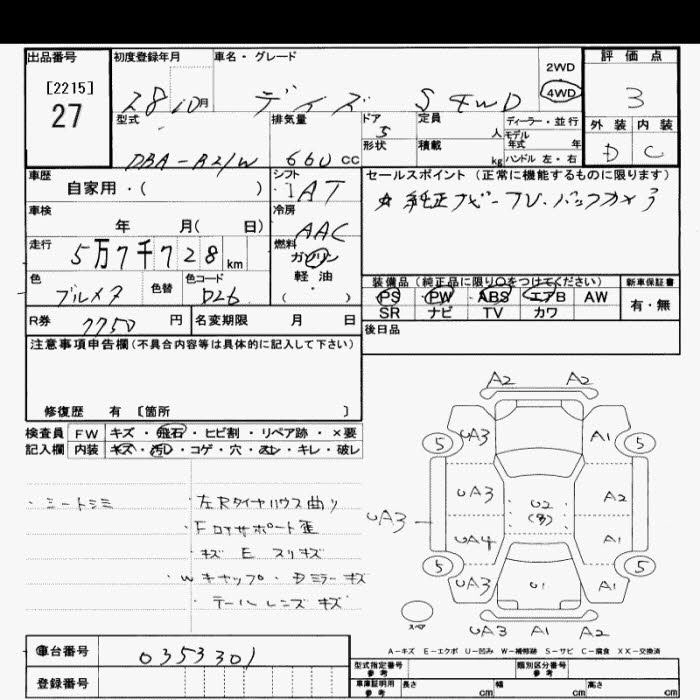 出品番号
[2215]
27
初度登録年月
28 10 月
車名・グレード
デイズ S 4WD
2WD
4WD
評価点
3
外装 内装
D C
型式
DBA-B21W
排気量
660 cc
ドア
5
形状
定員
人
積載
kg
ディーラー・並行
モデル年式 年
ハンドル 左・右
車歴
自家用・( )
シフト
AT
車検
年 月( 日)
冷房
AAC
走行
5万7千728 km
燃料
ガソリン
軽油
( )
色
ブルメタ
色替
色コード
セールスポイント(正常に機能するものに限ります)
☆ 純正ナビ-TV.バックカメラ
装備品(純正品に限り○をつけてください)
PS PW ABS エアB AW
SR ナビ TV カワ
新車保証書
有・無
R券
7750 円
名変期限 月 日
後日品
注意事項申告欄(不具合内容等は具体的に記入して下さい)
修復歴 有 〔箇所 〕
検査員 FW キズ・飛石・ヒビ割・リペア跡・×要
記入欄 内装 キズ・汚レ・コゲ・穴・スレ・キレ・破レ
・シートシミ
・左Rタイヤハウス曲り
・Fロアサポート歪
・キズ E スリキズ
・Wキャップ・Dミラーキズ
・テールレンズキズ
A2 A2
5 UA3 A1 5
UA3 A2
U2
(多)
UA3
UA4 A1
5 UA3 U1 A1 5
スペア
UA3 A1 A2
A-キズ E-エクボ U-凹み W-補修跡 S-サビ C-腐食 XX-交換済
車台番号
0353301
登録番号
型式指定番号 参考
類別区分番号 参考
車庫証明用 参考 長さ cm 幅 cm 高さ cm